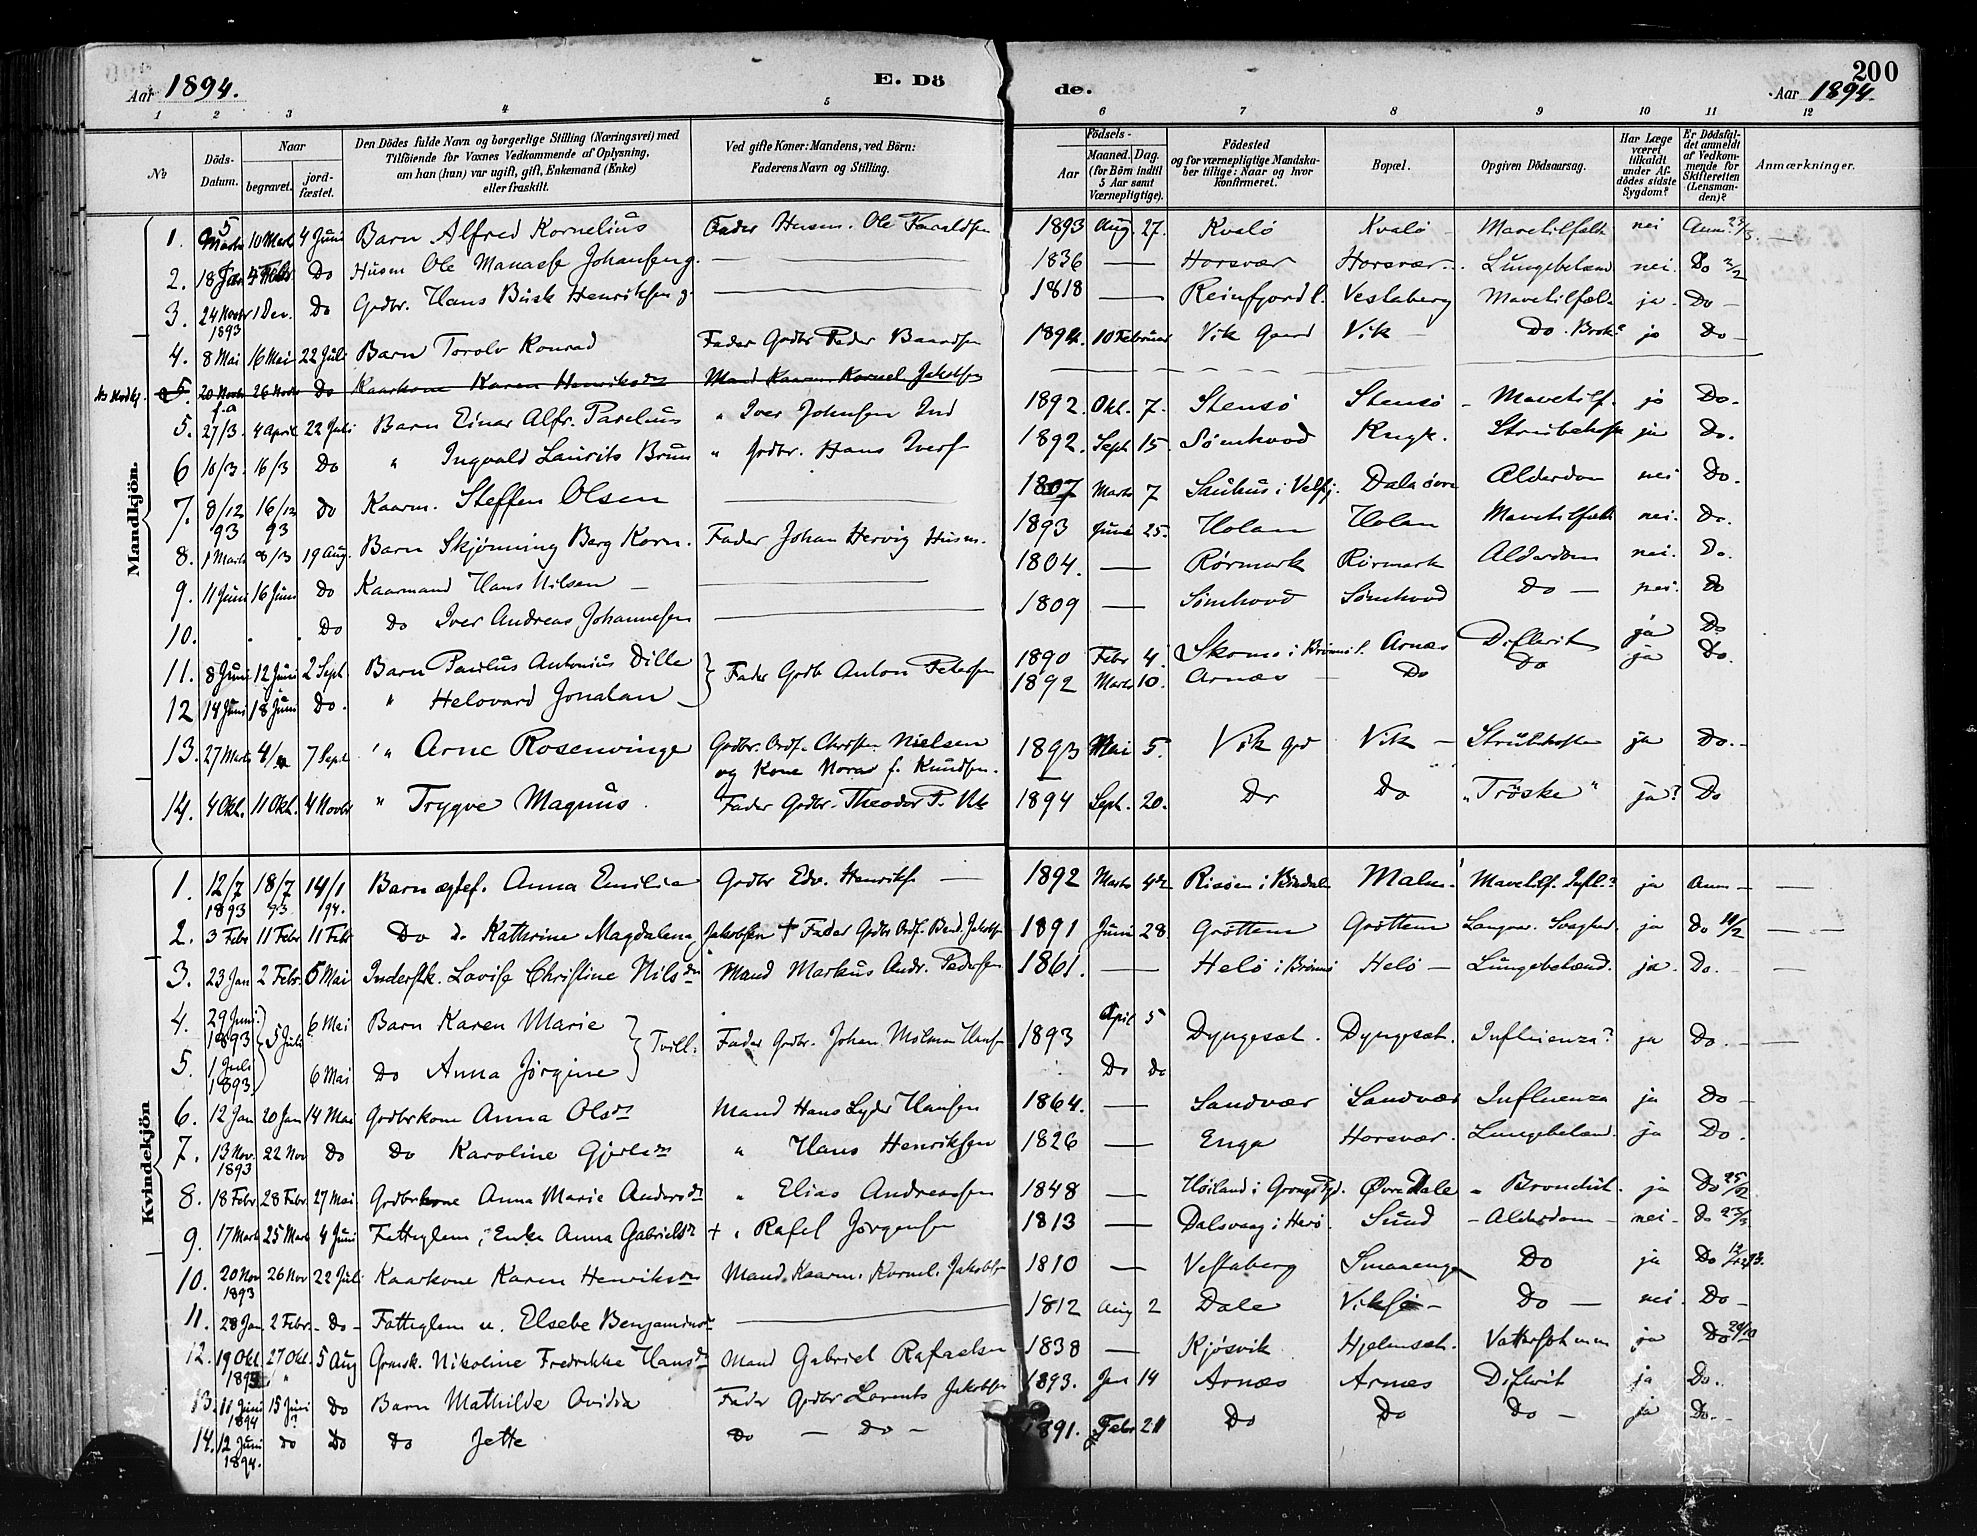 200
Aar 1894. E. Dö de. Aar 1894.
1 2 3 4 5 6 7 8 9 10 11 12
No
Döds-Datum.
Naar
begravet.
jord-fæstet.
Den Dödes fulde Navn og borgerlige Stilling (Næringsvei) med
Tilföiende for Voxnes Vedkommende af Oplysning,
om han (hun) var ugift, gift, Enkemand (Enke)
eller fraskilt.
Ved gifte Koner: Mandens, ved Börn:
Faderens Navn og Stilling.
Födsels-
Aar
Maaned. Dag.
(for Börn indtil
5 Aar samt
Værnepligtige).
Födested
og for værnepligtige Mandska-
ber tillige: Naar og hvor
konfirmeret.
Bopæl.
Opgiven Dödsaarsag.
Har Læge
været
tilkaldt
under Af-
dödes sidste
Sygdom?
Er Dödsfal-
det anmeldt
af Vedkom-
mende for
Skifteretten
(Lensman-
den)?
Anmærkninger.
Mandkjön.
1. 5 Marts 10 Mart 4 Juni Barn Alfred Kornelius Fader Husm. Ole Haraldsen 1893 Aug. 27. Kvalö Kvalö Mavetilfælde nei Anm. 23/3
2. 18 Jan 4 Febr Do Husm Ole Manasse Johansen g. 1836 — Horsvær Horsvær Lungebetænd nei. Do 2/2
3. 24 Novbr 1893 1 Dec. Do Grdbr. Hans Busk Henriksen g. 1818 — Reinfjord Vestaberg Mavetilfæld ja. Do —
4. 8 Mai 16 Mai 22 Juli Barn Torolv Konrad Fader Grdbr Peder Baardsen 1894. 10 Februar Vik Gaard Vik Do. Brok? ja Do —
5. 20 Novbr 26 Novbr Do Kaarkone Karen Henriksdr Mand Kaarm. Kornel. Jakobsen
5. 27/3. 4 April 22 Juli Barn Einar Alfr. Paselius " Iver Johnsen Ind 1892. Okt. 7. Stensö Stensö Mavetilf. ja Do.
6 10/3. 16/3 Do " Ingvald Laurits Bruun " Grdbr. Hans Ivers 1892. Sept 15. Sømhovd Strubehoste ja Do.
7. 8/12 93 16/12 93 Do Kaarm. Steffen Olsen 1807 Marts 7 Sauhus i Velfj. Dala övre Alderdom nei Do.
8. 1 Marts 8/3 19 Aug. Barn Skjønning Berg Korn. Fader Johan Hervig Husm. 1893 Juni 25. Holan Holan Mavetilfælde nei. Do.
9. 11 Juni 16 Juni Do Kaarmand Hans Nilsen 1804. — Rørmark Rörmark Alderdom nei. Do.
10. Do Do Iver Andreas Johannesen 1809 — Sømhovd Sømhovd Do — nei. Do
11. 8 Juni 12 Juni 2 Sept Barn Paulus Antonius Dille } Fader Grdb Anton Petersen 1890 Febr 4. Skomo i Brønnö. Arnæs Difterit ja Do
12 14 Juni 18 Juni Do. " Helovard Jonatan 1892 Marts 10. Arnæs Do Do ja Do.
13. 27 Marts 4/4 7 Sept " Arne Rosenvinge Grdbr. Ordf. Christn. Nielsen
og Kone Nora f. Knudsen. 1893 Mai 5. Vik Grd Vik — Strubehoste ja Do. —
14. 4 Okt. 11 Okt. 4 Novbr " Trygve Magnus. Fader Grdbr. Theodor P. Vik 1894 Sept. 20. Do Do "Tröske" ja? Do
Kvindekjön
1. 12/7 1893 18/7 93 14/1 94. Barn ægtef. Anna Emilie Grdbr Edv. Henriks — 1892 Marts 4de Risöen i Bindalen Malm. Mavetilf. Infl.? ja Anm —
2. 3 Febr 11 Febr 11 Febr Do d. Kathrine Magdalena Jakobsen † Fader Grdbr Ordf. Bend. Jakobs 1891 Juni 28. Gröttem Gröttem Langvar. Svaghed ja Do 10/2
3. 23 Jan 2 Febr. 5 Mai Inderstk. Lovise Christine Nilsdr Mand Markus Andr. Pedersen 1861. — Helö i Brönnö Helö — Lungebetænd. ja. Do. —
4. 29 Juni 1893 } 5 Juli 6 Mai Barn Karen Marie } Tvill. Fader Grdbr. Johan Molman Hans 1893 April 5 Dyngeset. Dyngeset. Influenza? ja Do. —
5. 1 Juli 1893. 6 Mai Do Anna Jørgine Do Do
6. 12 Jan 20 Jan 14 Mai Grdbrkone Anna Olsdr Mand Hans Lyder Hansen 1864. — Sandvær Sandvær Influenza ja Do —
7. 13 Nov. 1893 22 Nov Do Do Karoline Gjertsdr " Hans Henriksen 1826 — Enga Horsvær. Lungebetænd. ja Do.
8. 18 Febr 28 Febr 27 Mai Grdbrkone Anna Marie Andersdr " Elias Andreassen 1848 — Høiland i Grongs Pgd. Øvre Dale ja Do 25/2
9. 17 Mart 25 Mart 4 Juni Fattiglem, Enke Anna Gabrielsdr + " Rafel Jørgensen 1813 — Dalsvaag i Herö Sund — Alderdom — nei. Do 23/3
10. 20 Nov 1893 26 Nov 22 Juli Kaarkone Karen Henriksdr Mand. Kaarm. Kornel. Jakobsen 1810 — Vestaberg Smaaenge Do ja Do
11. 28 Jan 2 Febr. Do Fattiglem u. Elsebe Benjaminsdr 1812 Aug 2 Dale — Do — nei. Do —
12. 19 Okt 1893 27 Okt. 5 Aug Grmsk. Nikoline Fredrikke Hansdr Mand Gabriel Rafaelsen 1838 — Kjösvik Hjelmset. ja Do 29/10
13. 11 Juni 1894 15 Juni Do Barn Mathilde Ovidia Fader Grdbr Lorents Jakobsen 1893. Jan 14 Arnæs Arnæs Difterit ja Do.
14. 12 Juni 1894. Do Do Do Jette Do — Do — 1891. Febr 21 Do Do Do — ja Do. —